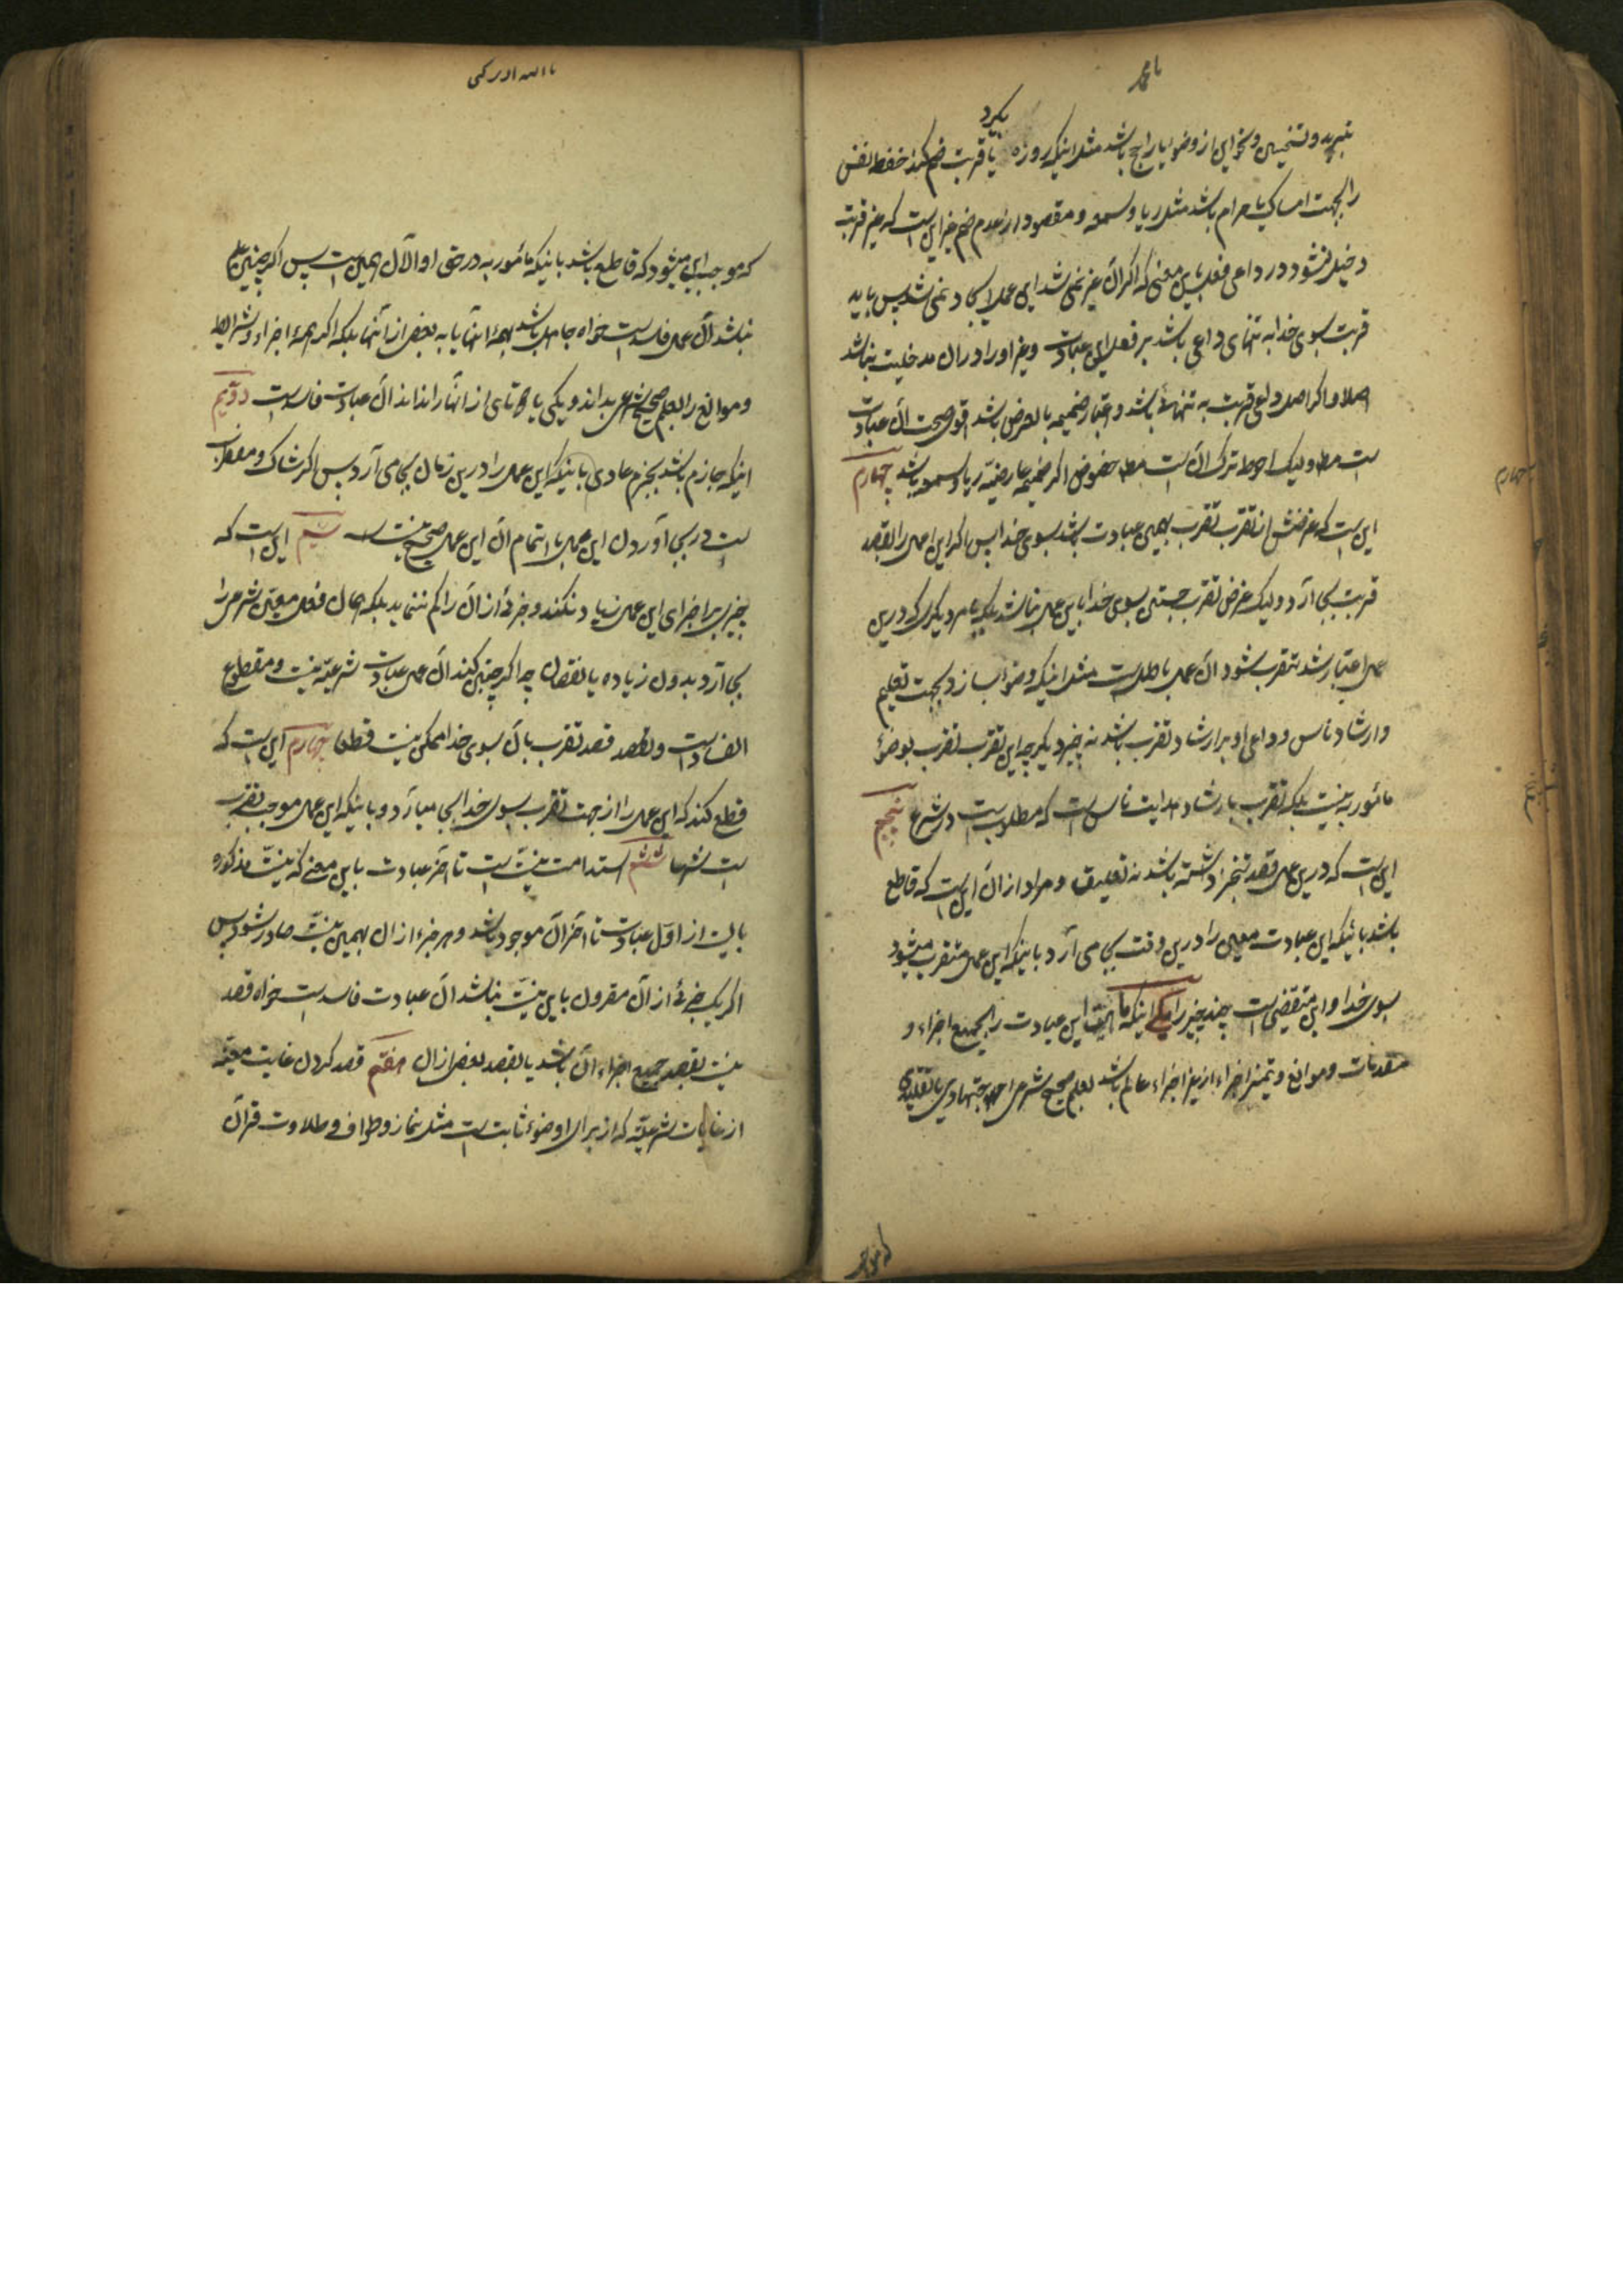 یا محمد
بگیرد
تبرید و تسخین و نحو این از وضو یا راجح باشد مثل اینکه روزه با قربت ضم کند حفظ نفس
را بجهت امساک یا حرام باشد مثل ریا و سمعه و مقصود از عدم ضم چیز این است که غیر قربت
دخیل نشود در داعی فعل باین معنی که اگر آن غیر نمی شد این عمل ایجاد نمی شد پس باید
قربت بسوی خدا به تنهای داعی باشد بر فعل این عبادت و غیر او را در آن مدخلیت نباشد
اصلا و اگر اصل داعی قربت به تنهائی باشد و اعتبار ضمیمه بالعرض باشد اقوی صحت آن عبادت
است مط و لیک احوط ترک آن است مط خصوص اگر ضمیمه عارضیه ریا و سمعه باشد چهارم
این است که غرضش از تقرب تقرب بهمین عبادت باشد بسوی خدا پس اگر این عمل را بقصد
قربت بجا آرد و لیک غرض تقرب جستن بسوی خدا باین عمل نباشد بلکه بامر دیگری که درین
عمل اعتبار شد تقرب شود آن عمل باطل است مثل اینکه وضو بسازد بجهت تعلیم
و ارشاد ناس و داعی او بر ارشاد تقرب باشد نه چیز دیگر چه این تقرب تقرب بوضوء
مأمور به نیست بلکه تقرب بارشاد و هدایت ناس است که مطلوب است در شرع پنجم
این است که درین عمل قصد تنجز داشته باشد نه تعلیق و مراد از آن این است که قاطع
باشد باینکه این عبادت معین را درین وقت بجا می آرد باینکه این عمل متقرب میشود
بسوی خدا و این متقضی است چند چیز را یکی اینکه ماهیت این عبادت را بجمیع اجزاء و
مقدمات و موانع و تمیز اجزاء از غیر اجزاء عالم باشد بعلم صحیح شرعی اجتهادی یا تقلیدی
که موجب
چهارم
پنجم
که موجب این میشود که قاطع باشد باینکه مأمور به در حق او الآن همین است پس اگر چنین علم
نباشد آن عمل فاسد است خواه جاهل باشد بهمه آنها یا به بعض از آنها بلکه اگر همه اجزاء و شرایط
و موانع را بعلم صحیح شرعی بداند و یکی یا دو تای از آنها را نداند آن عبادت فاسد است دویم
اینکه جازم باشد بجزم عادی باینکه این عمل را درین زمان بجا می آرد پس اگر شاک و مضطرب
است در بجا آوردن این عمل یا اتمام آن این عمل صحیح نیست سیم این است که
چیزی بر اجزای این عمل زیاد نکند و جزئی از آن را کم ننماید بلکه همان فعل معین شرعی را
بجا آرد بدون زیاده یا نقصان چه اگر چنین کند آن عمل عبادت شرعیه نیست و مقطوع
الفساد است و قصد تقرب بآن بسوی خدا ممکن نیست قطعا چهارم این است که
قطع کند که این عمل را از جهت تقرب بسوی خدا بجا میآرد و باینکه این عمل موجب تقرب
است شرعا ششم استدامت نیت است تا آخر عبادت باین معنی که نیت مذکوره
بایست از اول عبادت تا آخر آن موجود باشد و هر جزء از آن بهمین نیت صادر شود پس
اگر یک جزئی از آن مقرون باین نیت نباشد آن عبادت فاسد است خواه قصد
نیت بقصد جمیع اجزاء آن باشد یا بقصد بعض از آن هفتم قصد کردن غایت معینه
از غایات شرعیه که از برای وضوء ثابت است مثل نماز و طواف و تلاوت قرآن